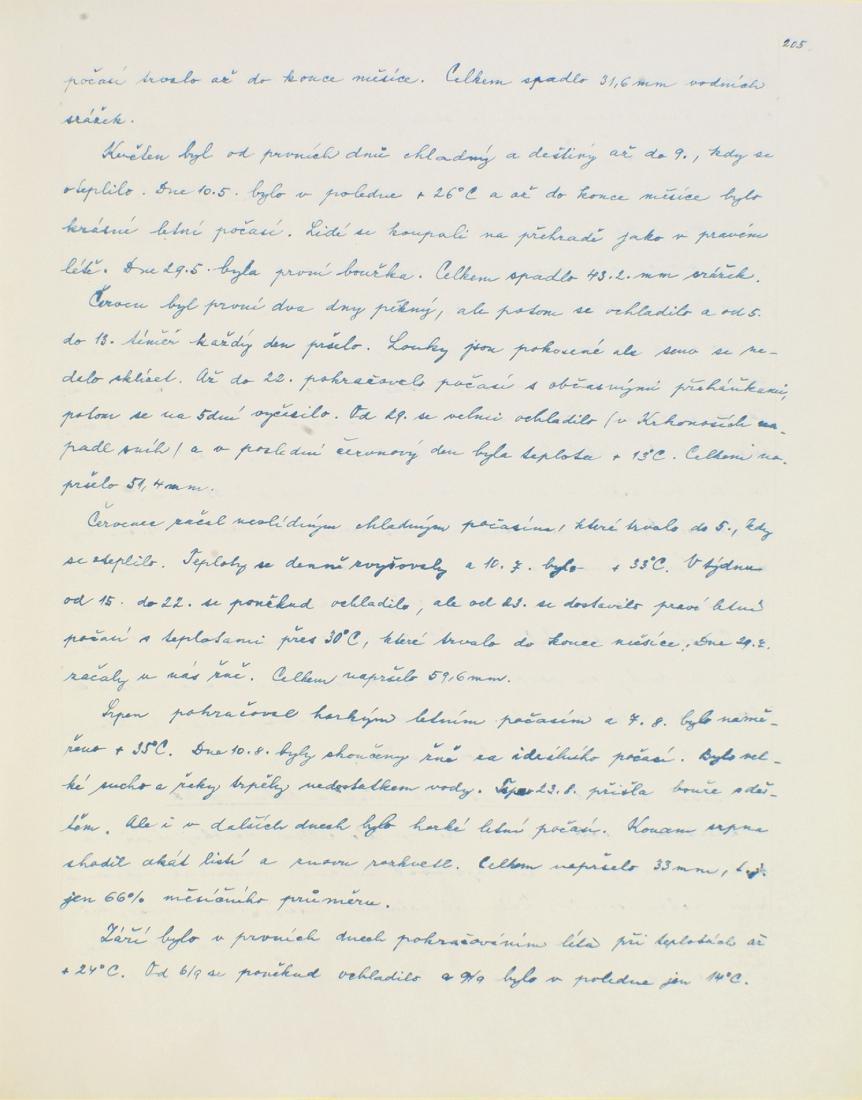 205
počasí trvalo až do konce měsíce. Celkem spadlo 31,6 mm vodních
srážek.
Květen byl od prvních dnů chladný a deštivý až do 9., kdy se
oteplilo. Dne 10.5. bylo v poledne + 26°C a až do konce měsíce bylo
krásné letní počasí. Lidé se koupali na přehradě jako v pravém
létě. Dne 29.5. byla první bouřka. Celkem spadlo 43.2. mm srážek.
Červen byl první dva dny pěkný, ale potom se ochladilo a od 5.
do 13. téměř každý den pršelo. Louky jsou pokosené ale seno se ne-
dalo sklízet. Až do 22. pokračovalo počasí s občasnými přeháňkami,
potom se na 5 dní vyčasilo. Od 29. se velmi ochladilo (v Krkonoších na-
padl sníh) a v poslední červnový den byla teplota + 13°C. Celkem na-
pršelo 51,4 mm.
Červenec začal nevlídným chladným počasím, které trvalo do 5., kdy
se oteplilo. Teploty se denně zvyšovaly a 10. 7. bylo + 33°C. V týdnu
od 15. do 22. se poněkud ochladilo, ale od 23. se dostavilo pravé letní
počasí s teplotami přes 30°C, které trvalo do konce měsíce. Dne 29.7.
začaly u nás žně. Celkem napršelo 59,6 mm.
Srpen pokračoval horkým letním počasím a 7. 8. bylo namě-
řeno + 35°C. Dne 10.8. byly skončeny žně za ideálního počasí. Bylo vel-
ké sucho a řeky trpěly nedostatkem vody. 23.8. přišla bouře s deš-
těm. Ale i v dalších dnech bylo horké letní počasí. Koncem srpna
shodil akát listí a znovu rozkvetl. Celkem napršelo 33 mm, t.j.
jen 66% měsíčního průměru.
Září bylo v prvních dnech pokračováním léta při teplotách až
+ 24°C. Od 6/9 se poněkud ochladilo a 9/9 bylo v poledne jen 14°C.